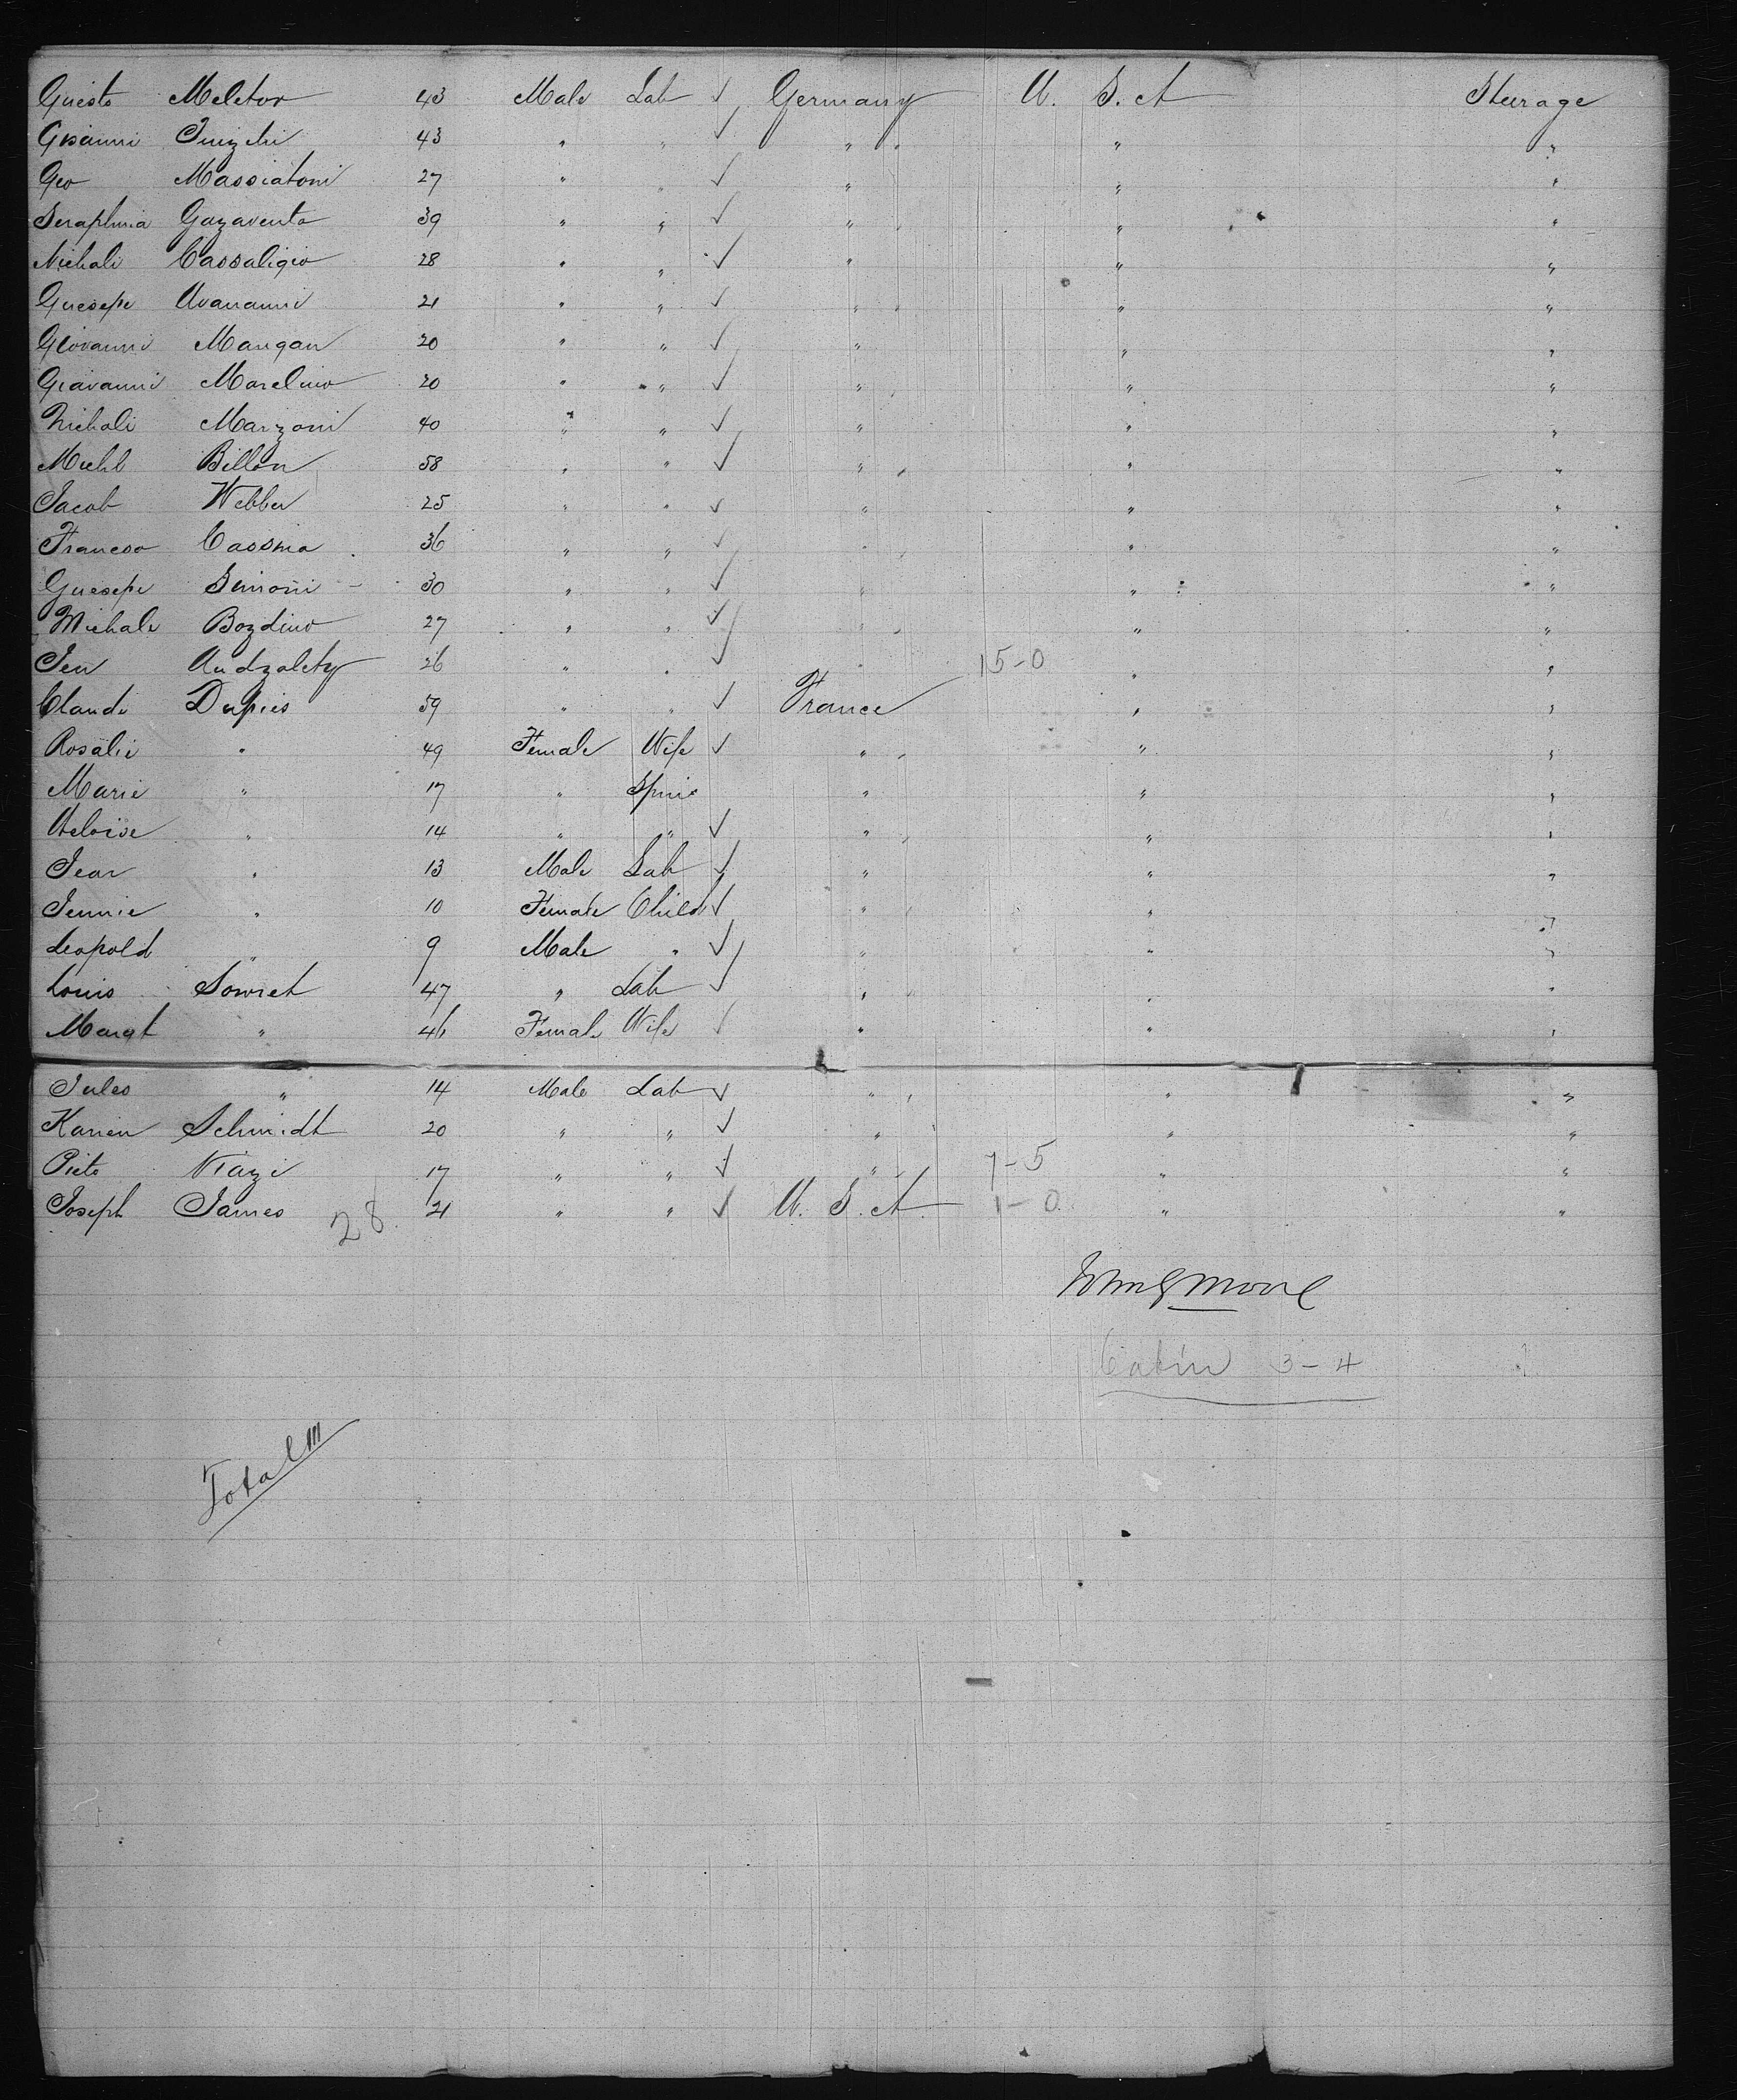 Guesto Meletor 43 Male Lab ✓ Germany U. S. A Steerage
Gioanni 43 " " ✓ " " "
Geo Massiatoni 27 " " ✓ " " "
Seraphina Gazaventa 39 " " ✓ " " "
Nichali Cassaligio 28 " " ✓ " " "
Guesepe Avananni 21 " " ✓ " " "
Giovanni Mangan 20 " " ✓ " " "
Giavanni Marelino 20 " " ✓ " " "
Nichali Marzoni 40 " " ✓ " " "
Michl Billon 58 " " ✓ " " "
Jacob Webber 25 " " ✓ " " "
Franceso Cassina 36 " " ✓ " " "
Guesepe Simoni 30 " " ✓ " " "
Michale Bozdino 27 " " ✓ " " "
Jen Audzalety 26 " " ✓ " 15-0 " "
Claude Dupies 59 " " ✓ France " "
Rosalie " 49 Female Wife ✓ " " "
Marie " 17 " Spin " " "
Heloise " 14 " " ✓ " " "
Jean " 13 Male Lab ✓ " " "
Jennie " 10 Female Child ✓ " " "
Leopold " 9 Male " ✓ " " "
Louis Sowret 47 " Lab ✓ " " "
Margt " 46 Female Wife ✓ " " "
Jules " 14 Male Lab ✓ " " "
Karien Schmidt 20 " " ✓ " " "
Pieto Niazi 17 " " ✓ " 7-5 " "
Joseph James 21 " " ✓ U. S. A 1-0 " "
28
John G Moore
Cabin 3-4
Total 111